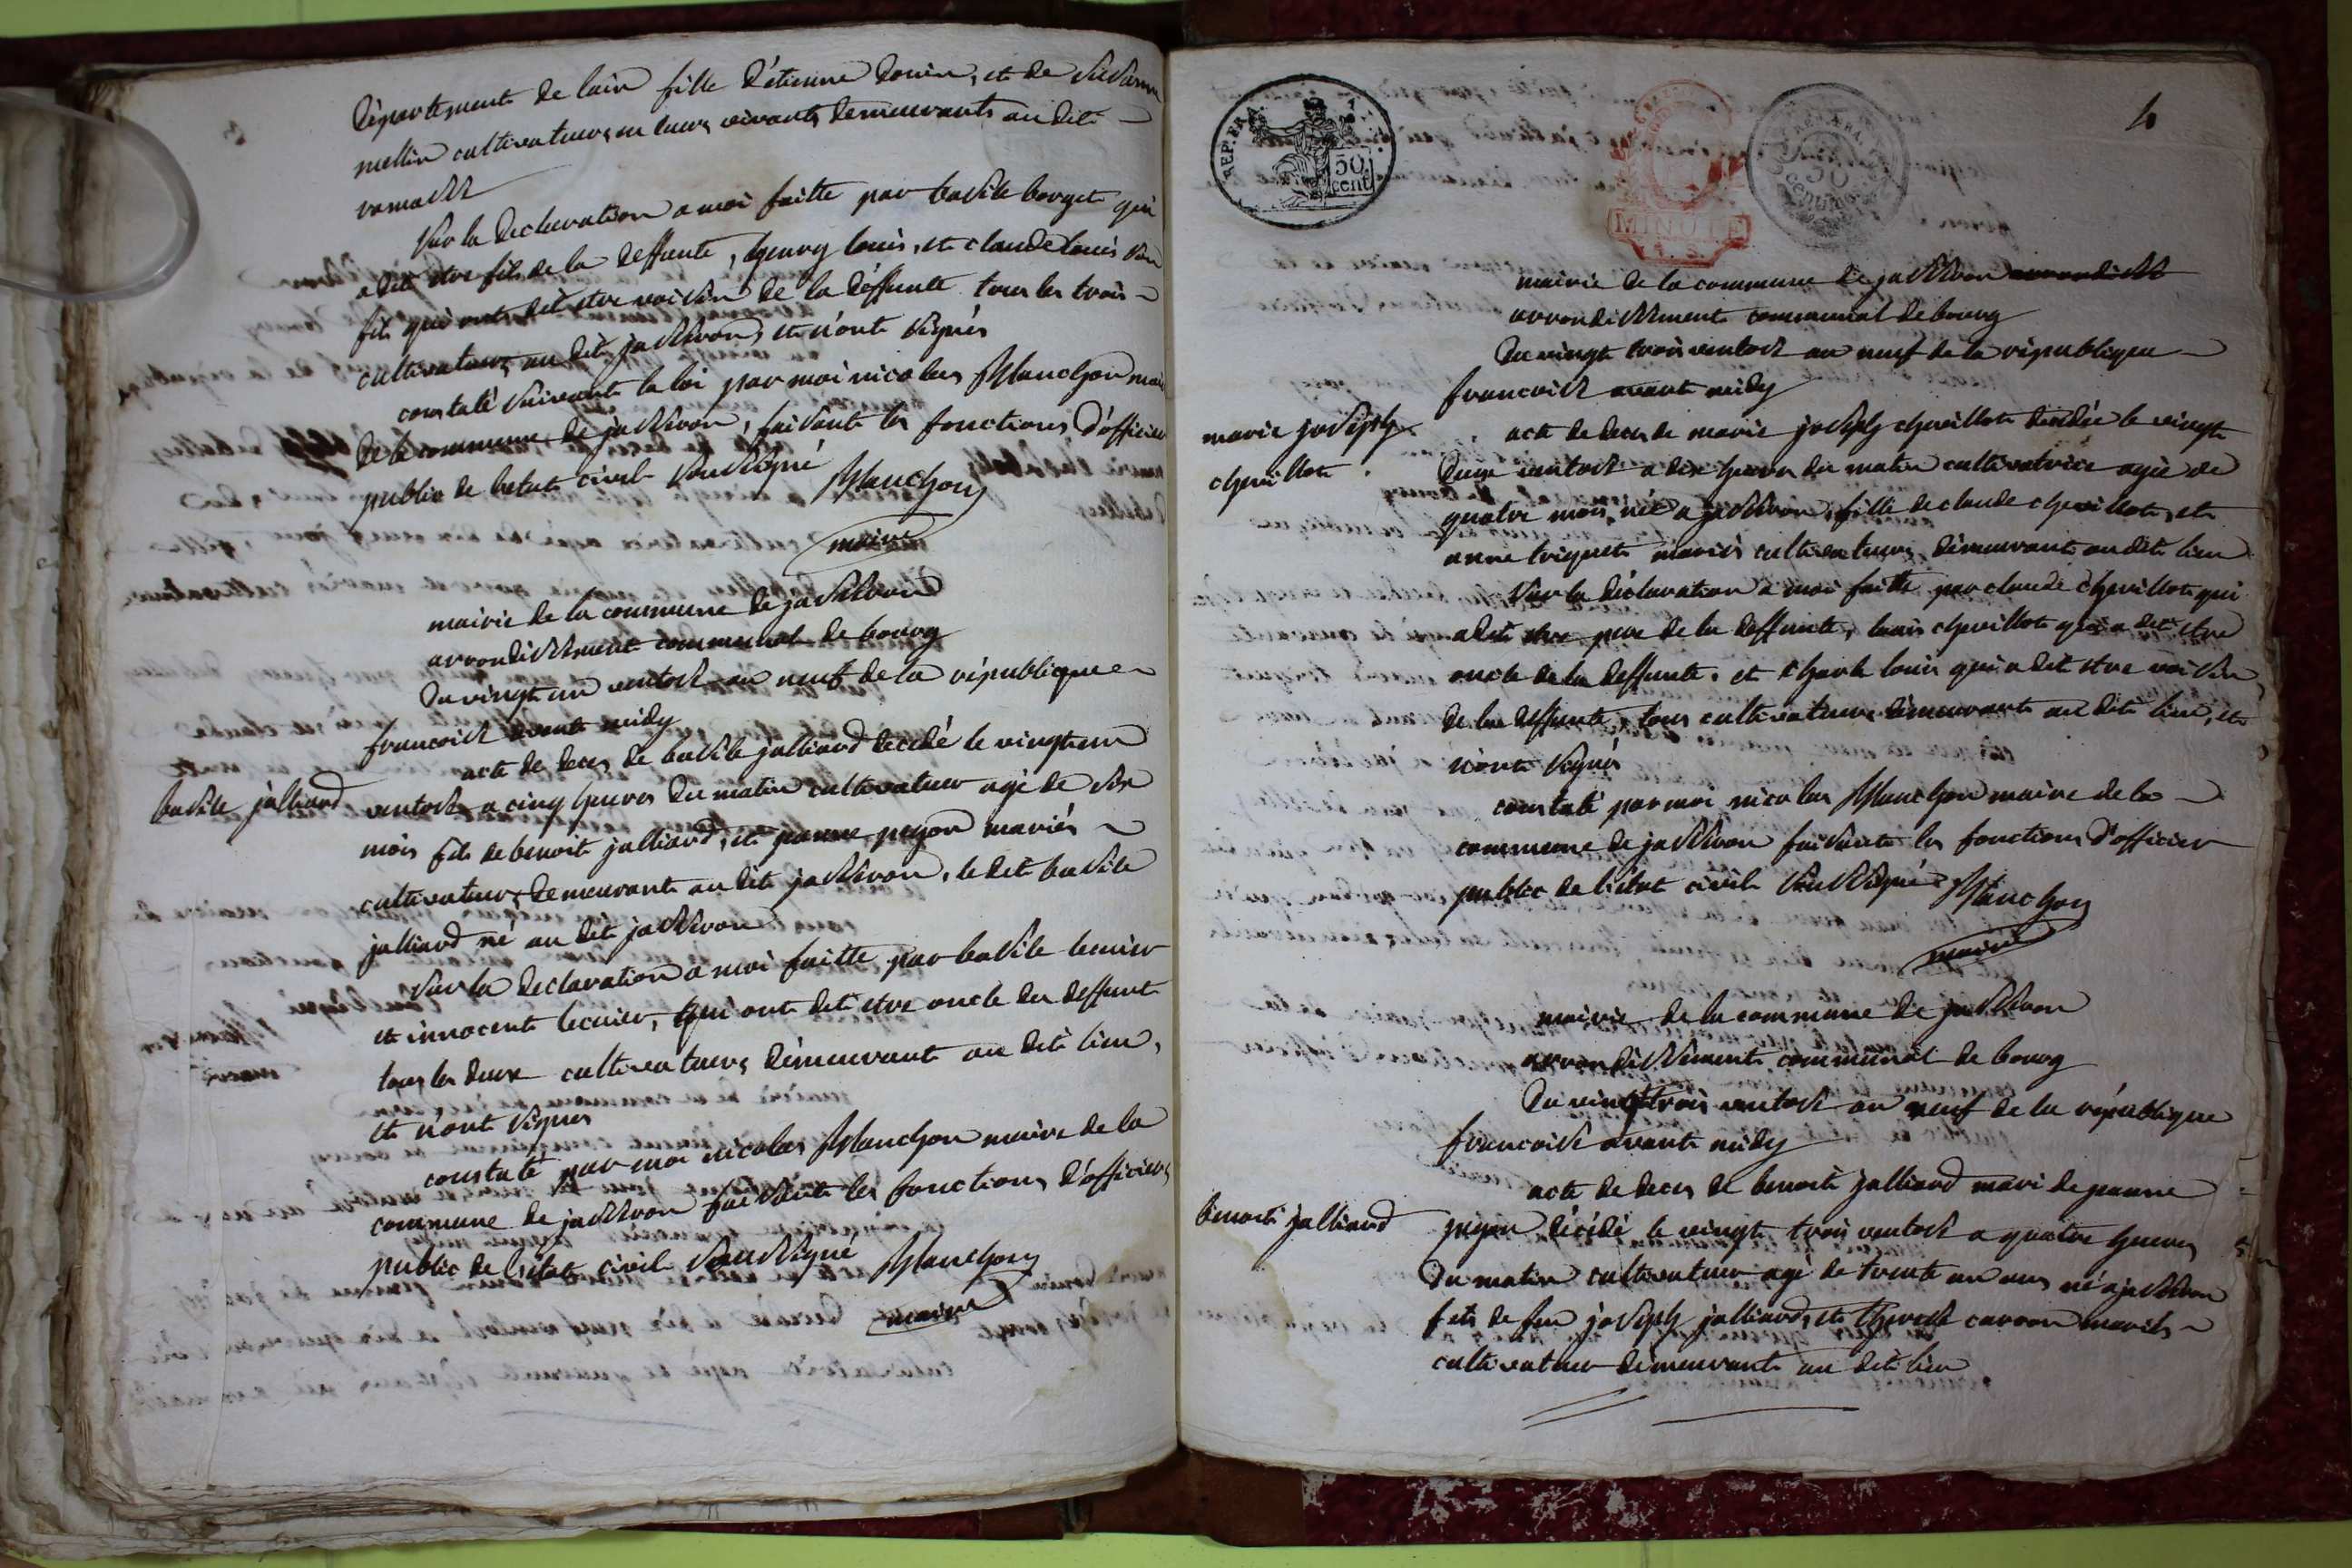 département de lain fille d'étienne douin, et de susanne
mellin cultivateurs en leurs vivants demeurants au dit
ramasse
Sur la declaration a moi faitte par basile borget qui
a dit etre fils de la deffunte, henry louis, et claude louis son
fils qui ont dit etre voisin de la déffunte tous les trois
cultivateurs au dit jasseron, et n'ont signés
constaté suivant la loi par moi nicolas planchon maire
de la commune de jasseron, faisant les fonctions d'officier
public de letat civil soussigné planchon
maire
mairie de la commune de jasseron
arrondissement communal de bourg
Du vingt un ventose an neuf de la république
francoise avant midy
basile julliard
acte de deces de basile julliard decédé le vingt un
ventose a cinq heures du matin cultivateur agé de six
mois fils de benoit julliard, et jeanne pegon mariés
cultivateurs demeurant au dit jasseron, le dit basile
julliard né au dit jasseron
Sur la declaration a moi faitte par basile lecuier
et innocent lecuier, qui ont dit etre oncle du deffunt
tous les deux cultivateurs démeurant au dit lieu,
et n'ont signés
constaté par moi nicolas planchon maire de la
commune de jasseron faisant les fonctions d'officier
public de l'état civil soussigné planchon
maire
REP. FRA.
50 cent
MINUTE
4
mairie de la commune de jasseron
arrondissement communal de bourg
Du vingt trois ventose an neuf de la république
francoise avant midy
marie joseph
chevillot
acte de deces de marie joseph chevillot dècédée le vingt
deux ventose a dix heures du matin cultivatrice agée de
quatre mois née a jasseron, fille de claude chevillot, et
anne triquet mariés cultivateurs démeurant au dit lieu
Sur la déclaration a moi faitte par claude chevillot qui
a dit etre pere de la deffunte, louis chevillot qui a dit etre
oncle de la deffunte. et charle louis qui a dit etre voisin
de la deffunte, tous cultivateurs démeurant au dit lieu, et
n'ont signés
constaté par moi nicolas planchon maire de la
commune de jasseron faisant les fonctions d'officier
public de l'état civil soussigné planchon
maire
mairie de la commune de jasseron
arrondissement communal de bourg
Du vingt trois ventose an neuf de la république
francoise avant midy
benoit julliard
acte de deces de benoit julliard mari de jeanne
pegon décédé le vingt trois ventose a quatre heures
du matin cultivateur agé de trente un ans né a jasseron
fils de feu joseph julliard, et therese carron mariés
cultivateur démeurant au dit lieu